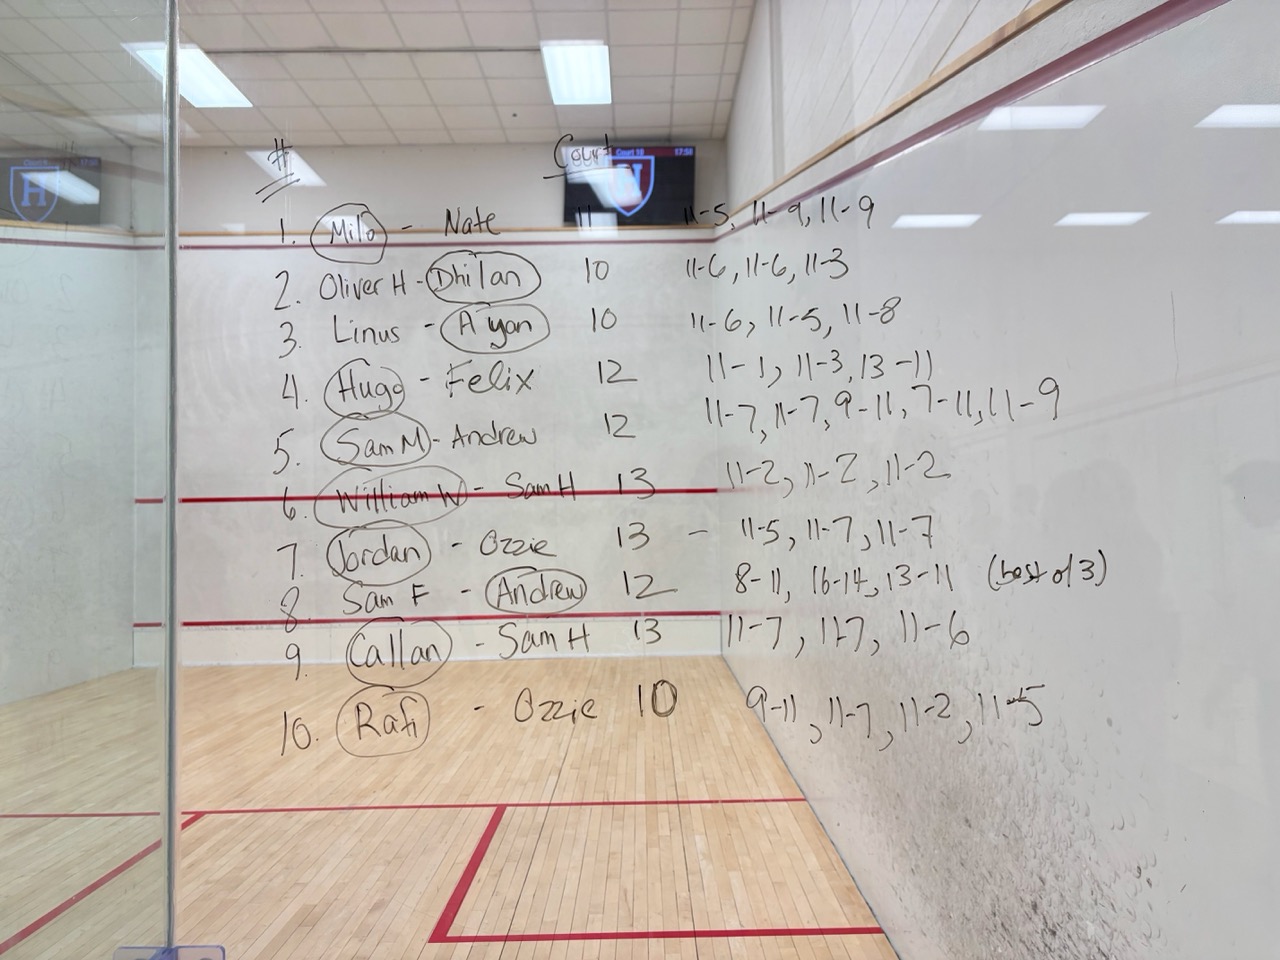 # Court
1. Milo - Nate 11 11-5, 11-9, 11-9
2. Oliver H - Dhilan 10 11-6, 11-6, 11-3
3. Linus - Ayan 10 11-6, 11-5, 11-8
4. Hugo - Felix 12 11-1, 11-3, 13-11
5. Sam M - Andrew 12 11-7, 11-7, 9-11, 7-11, 11-9
6. William W - Sam H 13 11-2, 11-2, 11-2
7. Jordan - Ozzie 13 - 11-5, 11-7, 11-7
8. Sam F - Andrew 12 8-11, 16-14, 13-11 (best of 3)
9. Callan - Sam H 13 11-7, 11-7, 11-6
10. Rafi - Ozzie 10 9-11, 11-7, 11-2, 11-5
Court 10 17:58
H